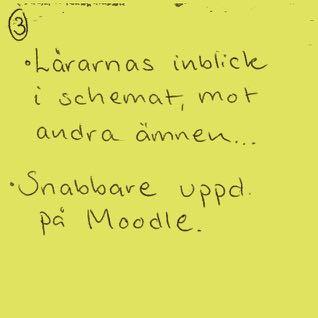 ③
• Lärarnas inblick
i schemat, mot
andra ämnen...
• Snabbare uppd.
på Moodle.